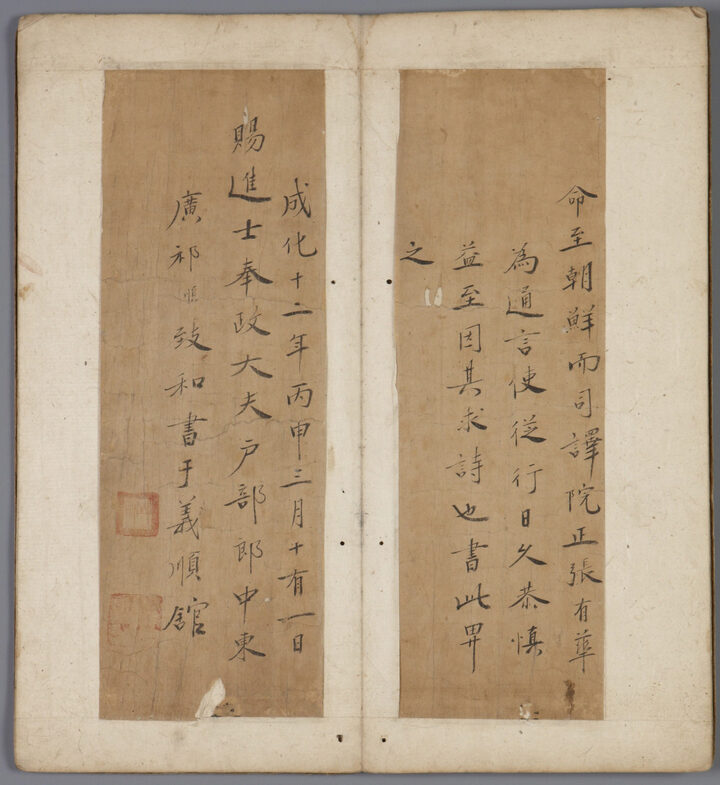 命至朝鮮而司譯院正張有華
為通言使從行日久恭慎
益至因其求詩也書此畀
之
成化十二年丙申三月十有一日
賜進士奉政大夫戶部郎中東
廣祁順致和書于義順館